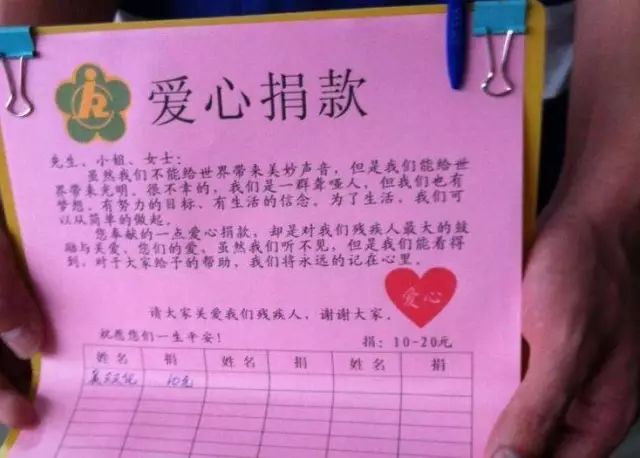 爱心捐款
先生、小姐、女士:
虽然我们不能给世界带来美妙声音，但是我们能给世
界带来光明。很不幸的，我们是一群聋哑人，但我们也有
梦想、有努力的目标、有生活的信念。为了生活，我们可
以从简单的做起。
您奉献的一点爱心捐款，却是对我们残疾人最大的鼓
励与关爱。您们的爱、虽然我们听不见，但是我们能看得
到，对于大家给予的帮助、我们将永远的记在心里。
爱心
请大家关爱我们残疾人，谢谢大家。
祝愿您们一生平安！ 捐：10-20元
姓名 捐 姓名 捐 姓名 捐
10元